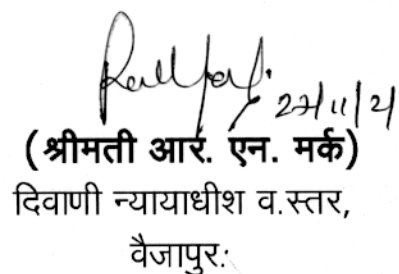 27/11/21
(श्रीमती आर. एन. मर्क)
दिवाणी न्यायाधीश व.स्तर,
वैजापुर.